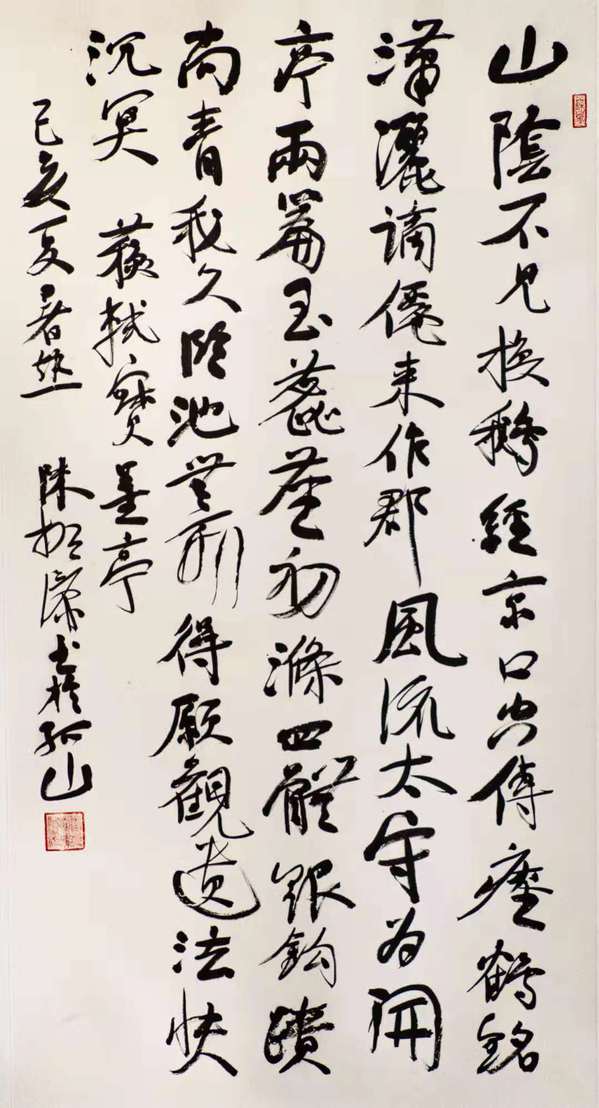 山陰不見換鵝經京口傳瘞鶴銘
瀟灑謫僊來作郡風流太守為開
亭兩篇玉蘂塵初滌四體銀鉤蹟
尚青我久臨池無所得願觀遺法快
沉冥 蘇軾寶墨亭
己亥夏暑 陳振濂書於孤山